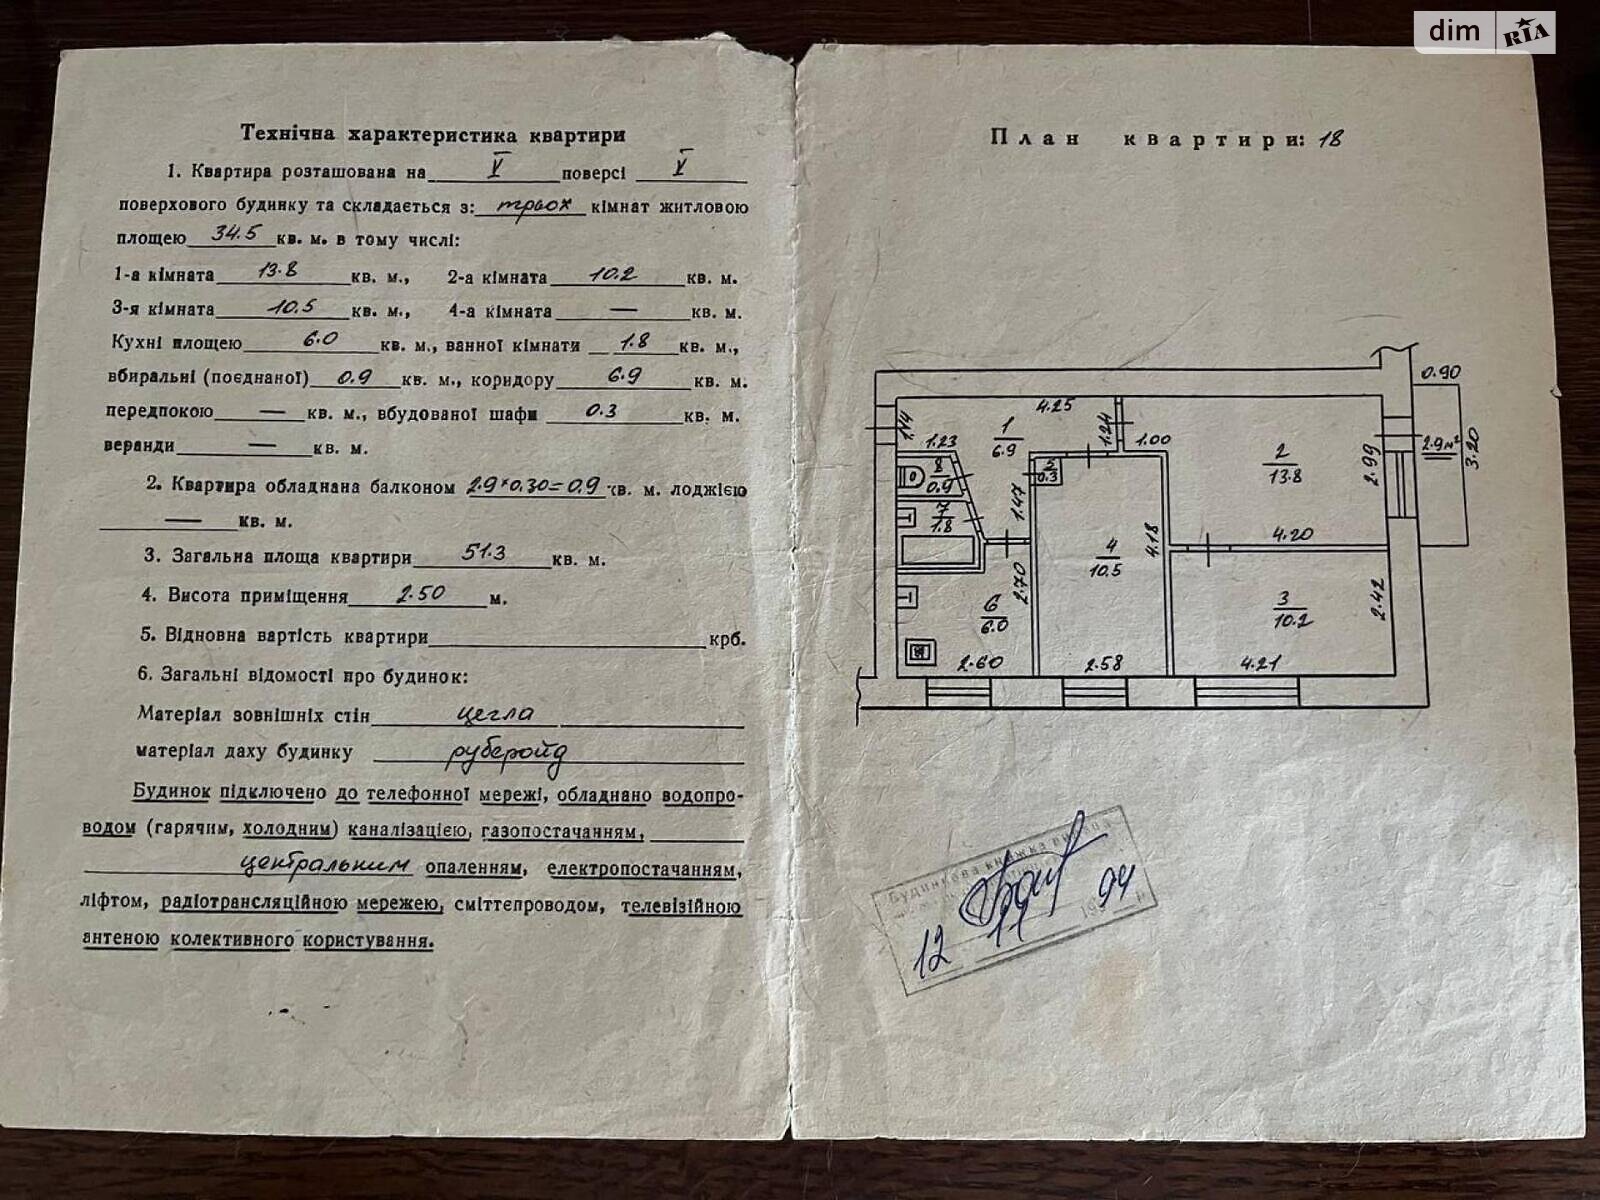 dim RIA
Технічна характеристика квартири
1. Квартира розташована на V поверсі V
поверхового будинку та складається з: трьох кімнат житловою
площею 34.5 кв. м. в тому числі:
1-а кімната 13.8 кв. м., 2-а кімната 10.2 кв. м.
3-я кімната 10.5 кв. м., 4-а кімната — кв. м.
Кухні площею 6.0 кв. м., ванної кімнати 1.8 кв. м.,
вбиральні (поєднаної) 0.9 кв. м., коридору 6.9 кв. м.
передпокою — кв. м., вбудованої шафи 0.3 кв. м.
веранди — кв. м.
2. Квартира обладнана балконом 2.9*0.30=0.9 кв. м. лоджією
— кв. м.
3. Загальна площа квартири 51.3 кв. м.
4. Висота приміщення 2.50 м.
5. Відновна вартість квартири крб.
6. Загальні відомості про будинок:
Матеріал зовнішніх стін цегла
матеріал даху будинку рубероїд
Будинок підключено до телефонної мережі, обладнано водопро-
водом (гарячим, холодним) каналізацією, газопостачанням,
центральним опаленням, електропостачанням,
ліфтом, радіотрансляційною мережею, сміттєпроводом, телевізійною
антеною колективного користування.
План квартири: 18
0.90
4.25
1.14 1.23 1 6.9 1.24 1.00
2 13.8 2.99 2.9м² 3.20
8 0.9 5 0.3
7 1.8 1.47
4 10.5 4.18 4.20
2.70
6 6.0 3 10.2 2.42
2.60 2.58 4.21
Будинкова книжка
12 11 1994